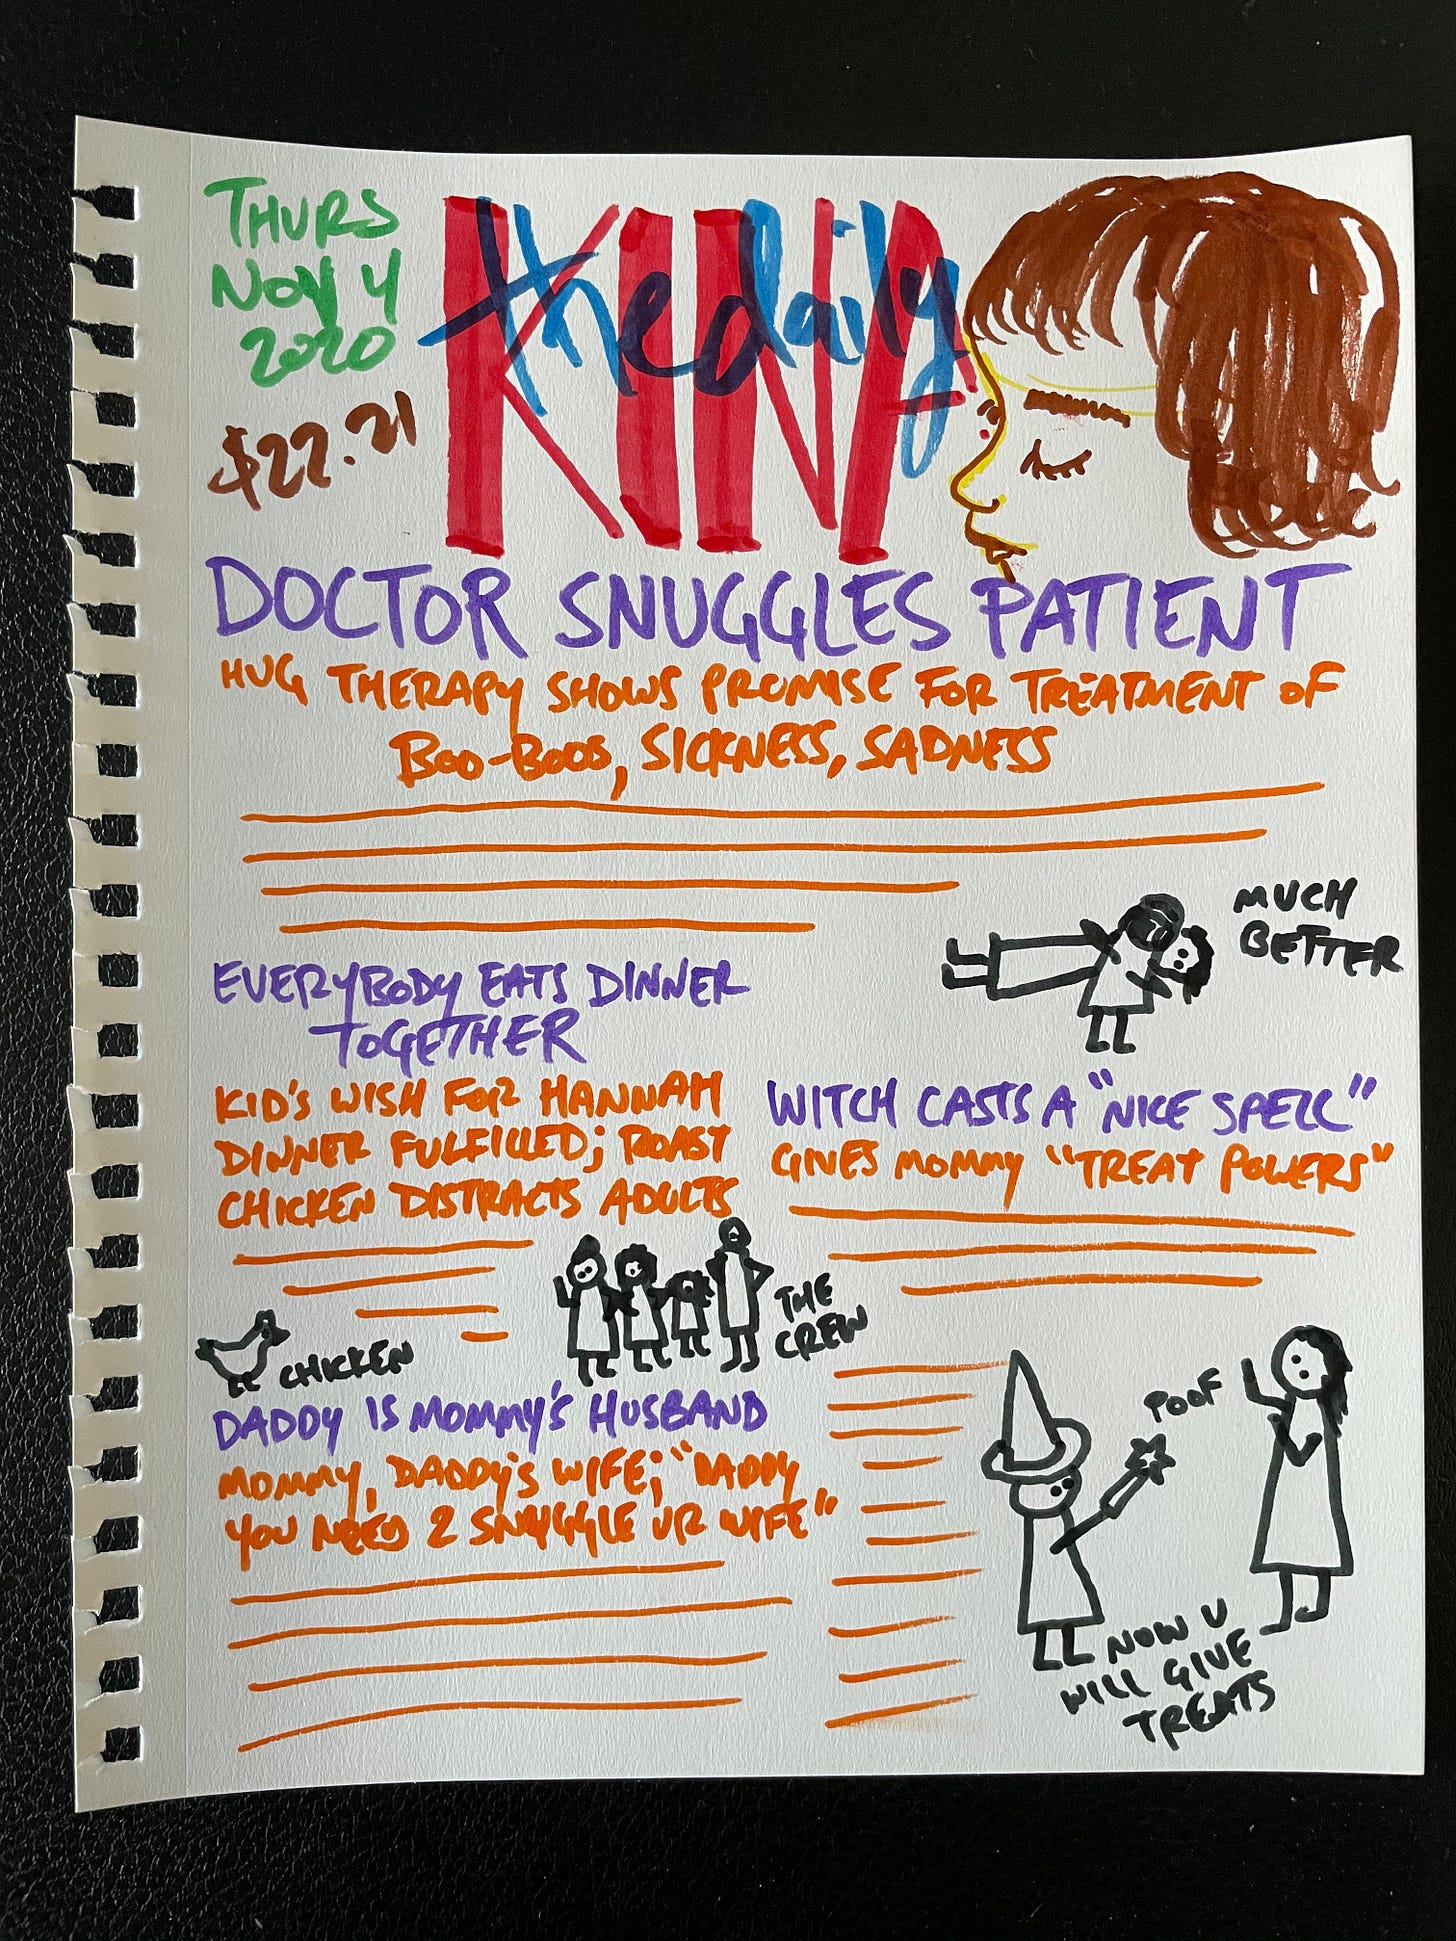 THURS
NOV 4
2020
$22.21
the daily
KIND
DOCTOR SNUGGLES PATIENT
HUG THERAPY SHOWS PROMISE FOR TREATMENT OF
BOO-BOOS, SICKNESS, SADNESS
MUCH
BETTER
EVERYBODY EATS DINNER
TOGETHER
KID'S WISH FOR HANNAH
DINNER FULFILLED; ROAST
CHICKEN DISTRACTS ADULTS
CHICKEN
THE
CREW
WITCH CASTS A "NICE SPELL"
GIVES MOMMY "TREAT POWERS"
POOF
NOW U
WILL GIVE
TREATS
DADDY IS MOMMY'S HUSBAND
MOMMY, DADDY'S WIFE; "DADDY
YOU NEED 2 SNUGGLE UR WIFE"